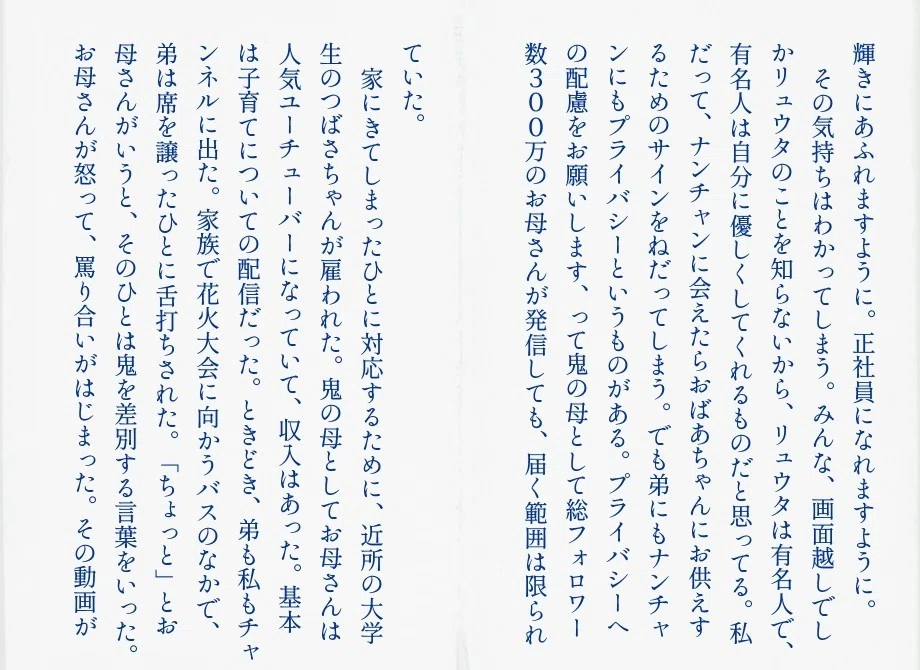 輝きにあふれますように。正社員になれますように。
その気持ちはわかってしまう。みんな、画面越しでし
かリュウタのことを知らないから、リュウタは有名人で、
有名人は自分に優しくしてくれるものだと思ってる。私
だって、ナンチャンに会えたらおばあちゃんにお供えす
るためのサインをねだってしまう。でも弟にもナンチャ
ンにもプライバシーというものがある。プライバシーへ
の配慮をお願いします、って鬼の母として総フォロワー
数300万のお母さんが発信しても、届く範囲は限られ
ていた。
家にきてしまったひとに対応するために、近所の大学
生のつばさちゃんが雇われた。鬼の母としてお母さんは
人気ユーチューバーになっていて、収入はあった。基本
は子育てについての配信だった。ときどき、弟も私もチャ
ンネルに出た。家族で花火大会に向かうバスのなかで、
弟は席を譲ったひとに舌打ちされた。「ちょっと」とお
母さんがいうと、そのひとは鬼を差別する言葉をいった。
お母さんが怒って、罵り合いがはじまった。その動画が